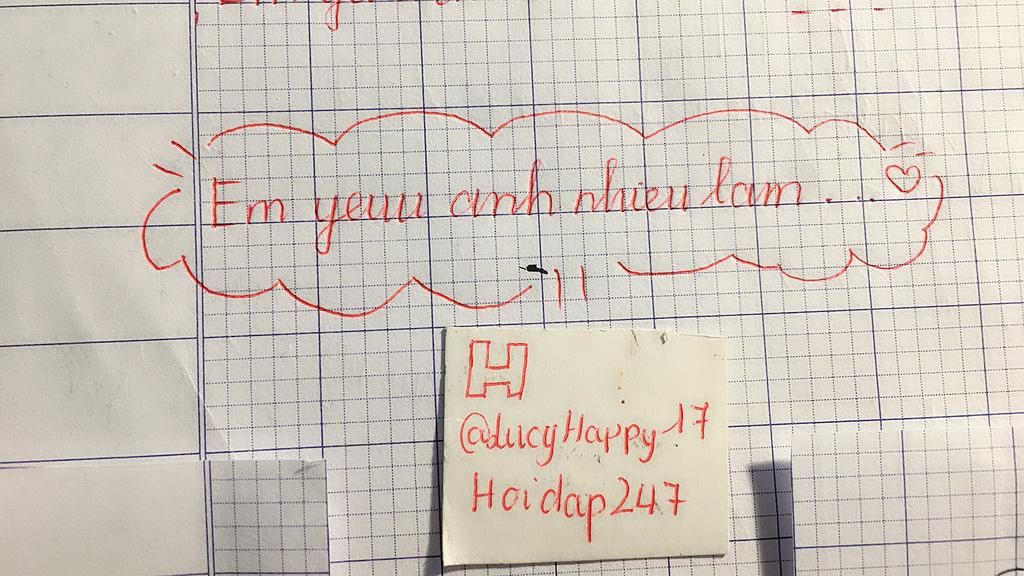 Em yeuu anh nhieu lam....
H
@LucyHappy17
Hoidap247